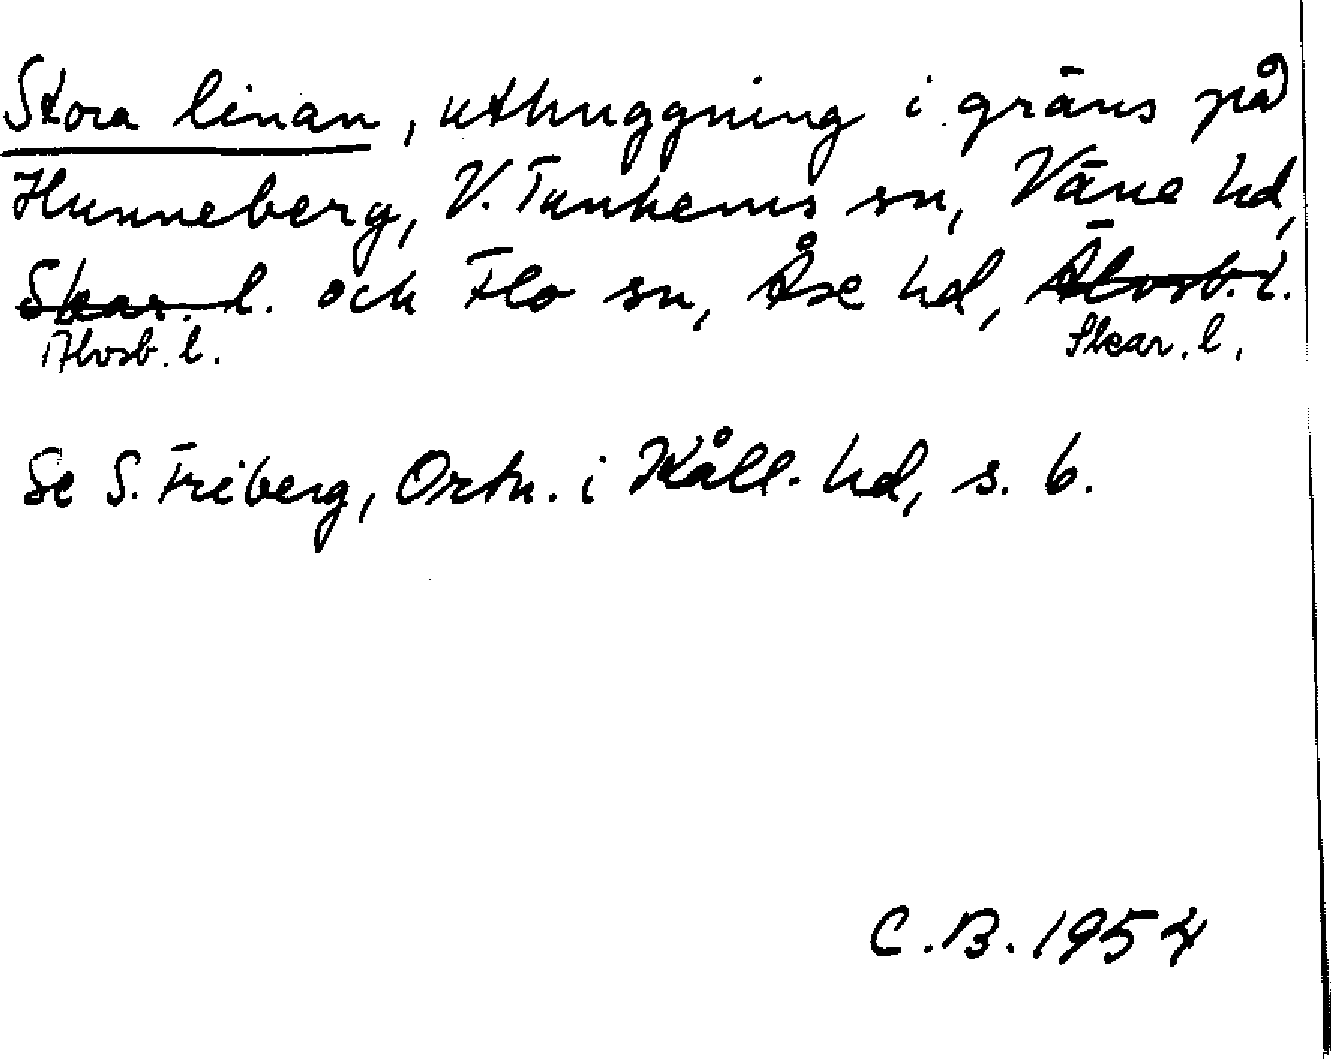 Stora linan, uthuggning i gräns på
Hunneberg, V. Tunhems sn, Väne hd,
Skar. l. och Flo sn, Åse hd, Älvsb. l.
Älvsb. l. Skar. l.
Se S. Friberg, Ortn. i Kåll. hd, s. 6.
C.B. 1954